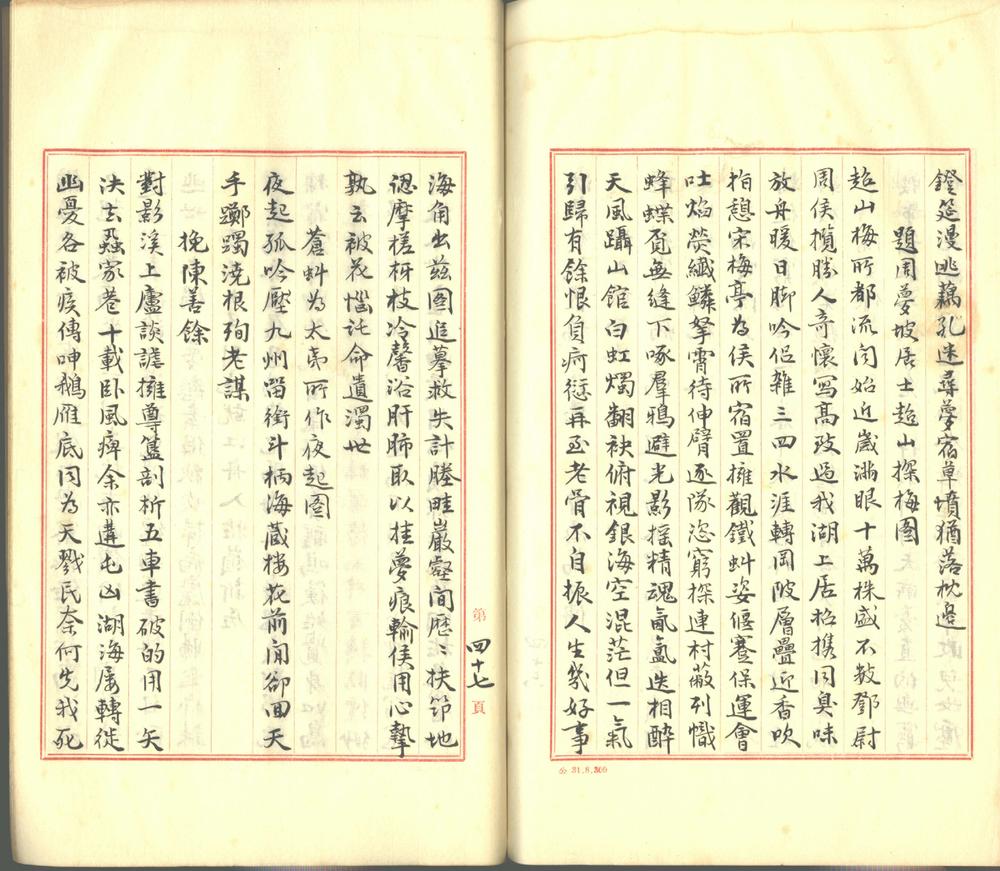 鐙筵漫逃藕孔迷尋夢宿草墳猶落枕邊
題周夢坡居士超山探梅圖
超山梅所都流聞始近歲滿眼十萬株盛不數鄧尉
周侯攬勝人奇懷寫高致過我湖上居招攜同臭味
放舟暖日腳吟侶雜三四水涯轉岡陂層疊迎香吹
指憩宋梅亭為侯所宿置擁觀鐵虯姿偃蹇保運會
吐焰熒纖鱗拏霄待伸臂逐隊恣窮探連村蔽列幟
蜂蝶覓無縫下啄羣鴉避光影搖精魂氤氳迭相醉
天風躡山館白虹燭翻袂俯視銀海空混茫但一氣
引歸有餘恨負痾愆再至老骨不自振人生幾好事
海角出茲圖追摹救失計塍畦巖壑間歷歷扶筇地
認摩槎枒枝冷馨浴肝肺取以挂夢痕輸侯用心摯
孰云被花惱託命遺濁世
蒼虯為太夷所作夜起圖
夜起孤吟壓九州罶銜斗柄海藏樓花前閒卻回天
手躑躅澆根殉老謀
挽陳善餘
對影溪上廬談讌擁尊簋剖析五車書破的用一矢
決去蝨家巷十載臥風痺余亦遘屯凶湖海屢轉徙
幽憂各被疾傳呻鵝雁底同為天戮民奈何先我死
第四十七頁
公 31.8.300